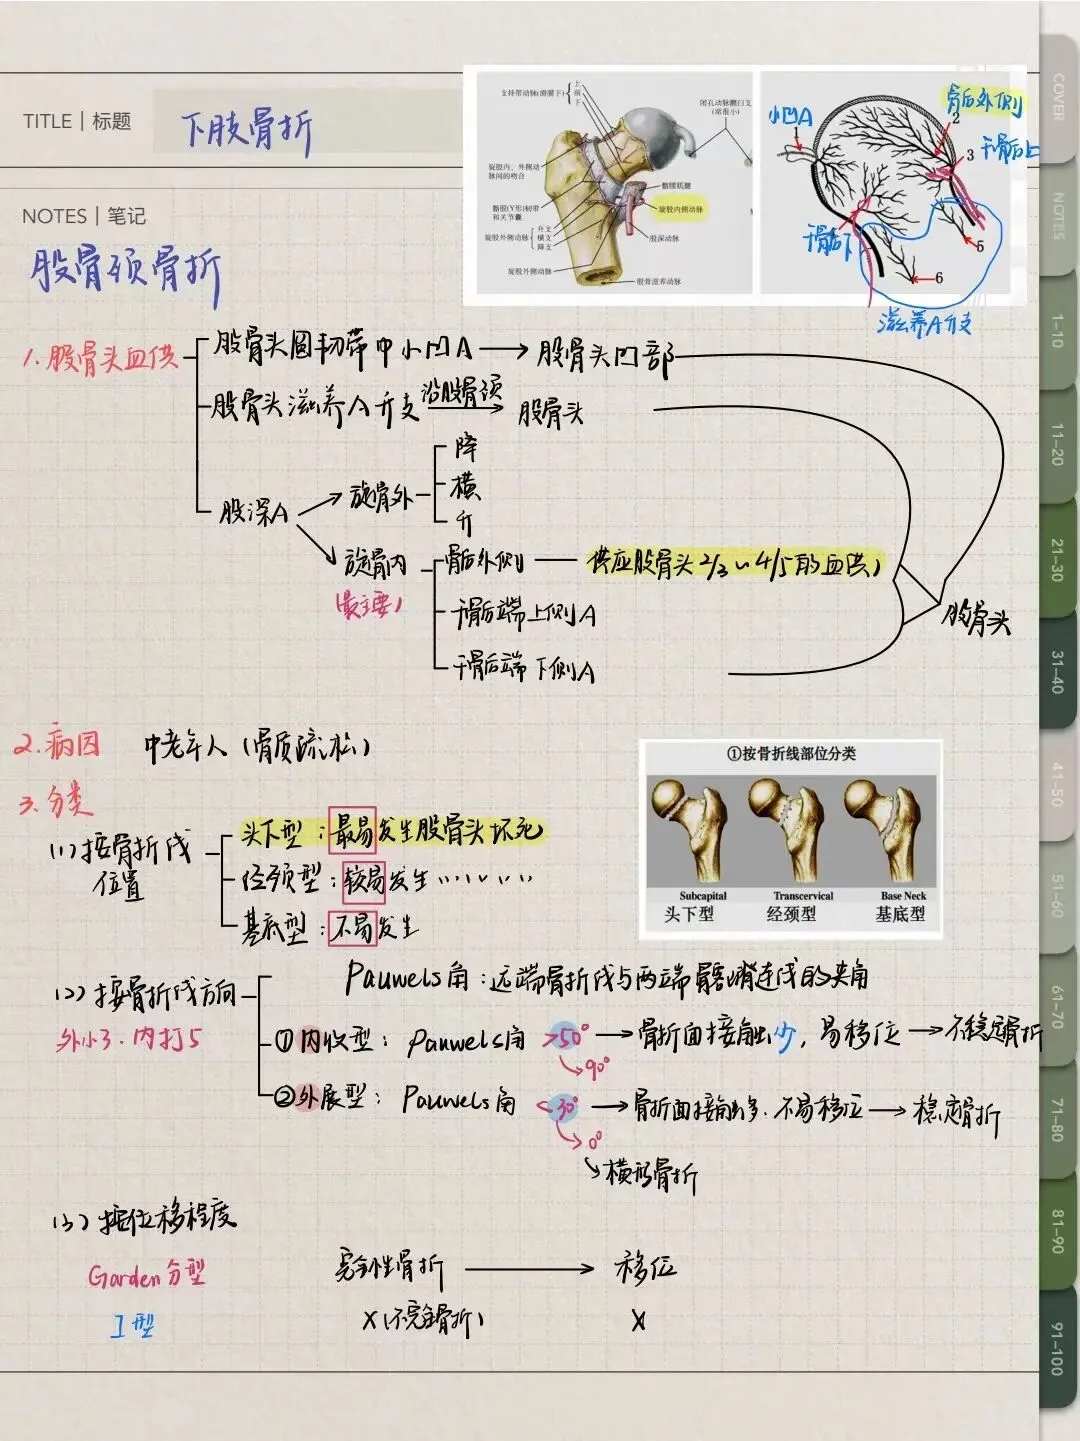 TITLE | 标题
下肢骨折
NOTES | 笔记
股骨颈骨折
支持带动脉(滑膜下)
上
前
下
闭孔动脉髋臼支
(常很小)
旋股内、外侧动
脉间的吻合
髂腰肌腱
髂股(Y形)韧带
和关节囊
旋股内侧动脉
旋股外侧动脉
升支
横支
降支
股深动脉
旋股外侧动脉
股骨滋养动脉
小凹A
1
骺后外侧
2
3
干骺后上
干骺后下
5
6
滋养A升支
1. 股骨头血供
股骨头圆韧带中小凹A → 股骨头凹部
股骨头滋养A升支 沿股骨颈 → 股骨头
股深A
旋骨外
降
横
升
旋骨内
(最主要)
骨后外侧 — 供应股骨头2/3~4/5的血供)
干骺后端上侧A
干骺后端下侧A
股骨头
2. 病因 中老年人(骨质疏松)
3. 分类
(1) 按骨折线
位置
头下型:最易发生股骨头坏死
经颈型:较易发生……
基底型:不易发生
①按骨折线部位分类
Subcapital Transcervical Base Neck
头下型 经颈型 基底型
(2) 按骨折线方向
外小3. 内打5
Pauwels角:远端骨折线与两端髂嵴连线的夹角
①内收型: Pauwels角 >50° → 骨折面接触少, 易移位 → 不稳定骨折
90°
②外展型: Pauwels角 <30° → 骨折面接触多. 不易移位 → 稳定骨折
0°
横形骨折
(3) 按位移程度
Garden分型 完全性骨折 → 移位
I型 X(不完全骨折) X
COVER
NOTES
1-10
11-20
21-30
31-40
41-50
51-60
61-70
71-80
81-90
91-100